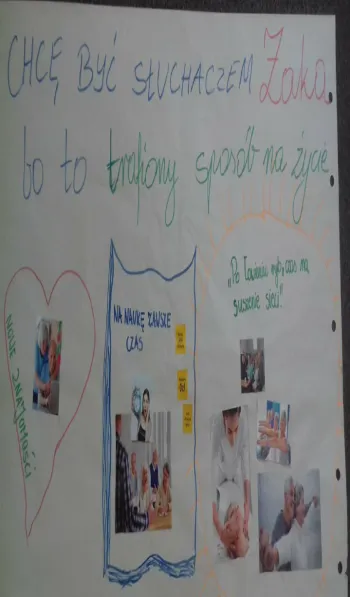 CHCĘ BYĆ SŁUCHACZEM Żaka,
bo to trafiony sposób na życie
NOWE ZNAJOMOŚCI
NA NAUKĘ ZAWSZE
CZAS
„Po łowieniu ryb, czas na
suszenie sieci."